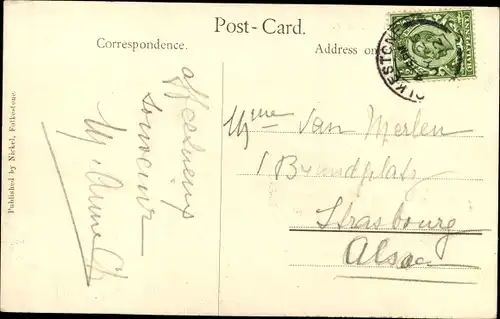 Post-Card.
Correspondence.
Address on
FOLKESTONE
affectueux
souvenir
Mme Van Merlen
1 Brandplatz
Strasbourg
Alsace
Published by Nickel, Folkestone.